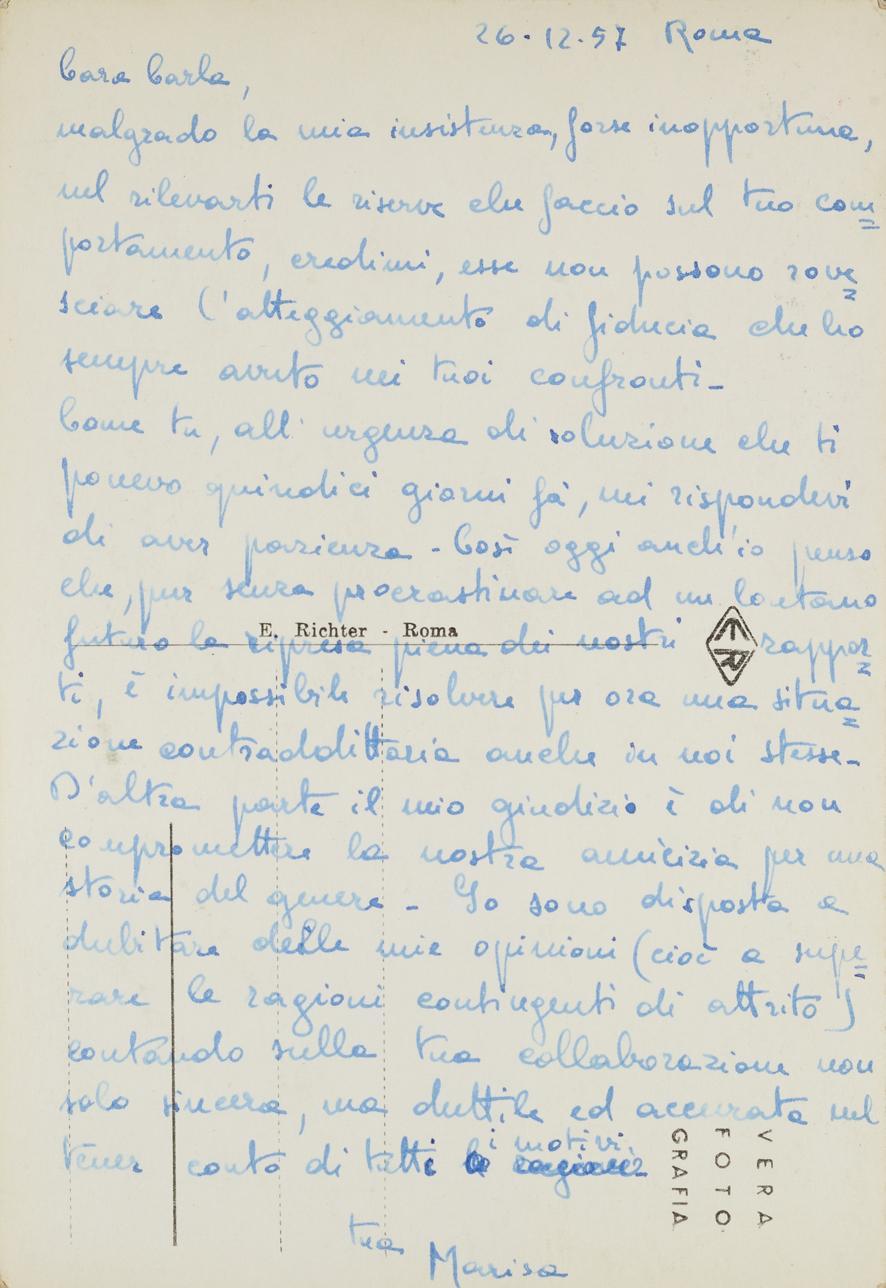 26.12.57 Roma
Cara Carla,
malgrado la mia insistenza, forse inopportuna,
nel rilevarti le riserve che faccio sul tuo com=
portamento, credimi, esse non possono rove=
sciare l'atteggiamento di fiducia che ho
sempre avuto nei tuoi confronti-
Come tu, all'urgenza di soluzione che ti
ponevo quindici giorni fà, mi rispondevi
di aver pazienza - Così oggi anch'io penso
che, pur senza procrastinare ad un lontano
E. Richter - Roma
futuro la ripresa piena dei nostri rappor=
ER
ti, è impossibile risolvere per ora una situa=
zione contraddittoria anche in noi stesse-
D'altra parte il mio giudizio è di non
compromettere la nostra amicizia per una
storia del genere - Io sono disposta a
dubitare delle mie opinioni (cioè a supe=
rare le ragioni contingenti di attrito)
contando sulla tua collaborazione non
solo sincera, ma duttile ed accurata nel
tener conto di tutti i motivi.
le ragioni
tua Marisa
VERA
FOTO
GRAFIA